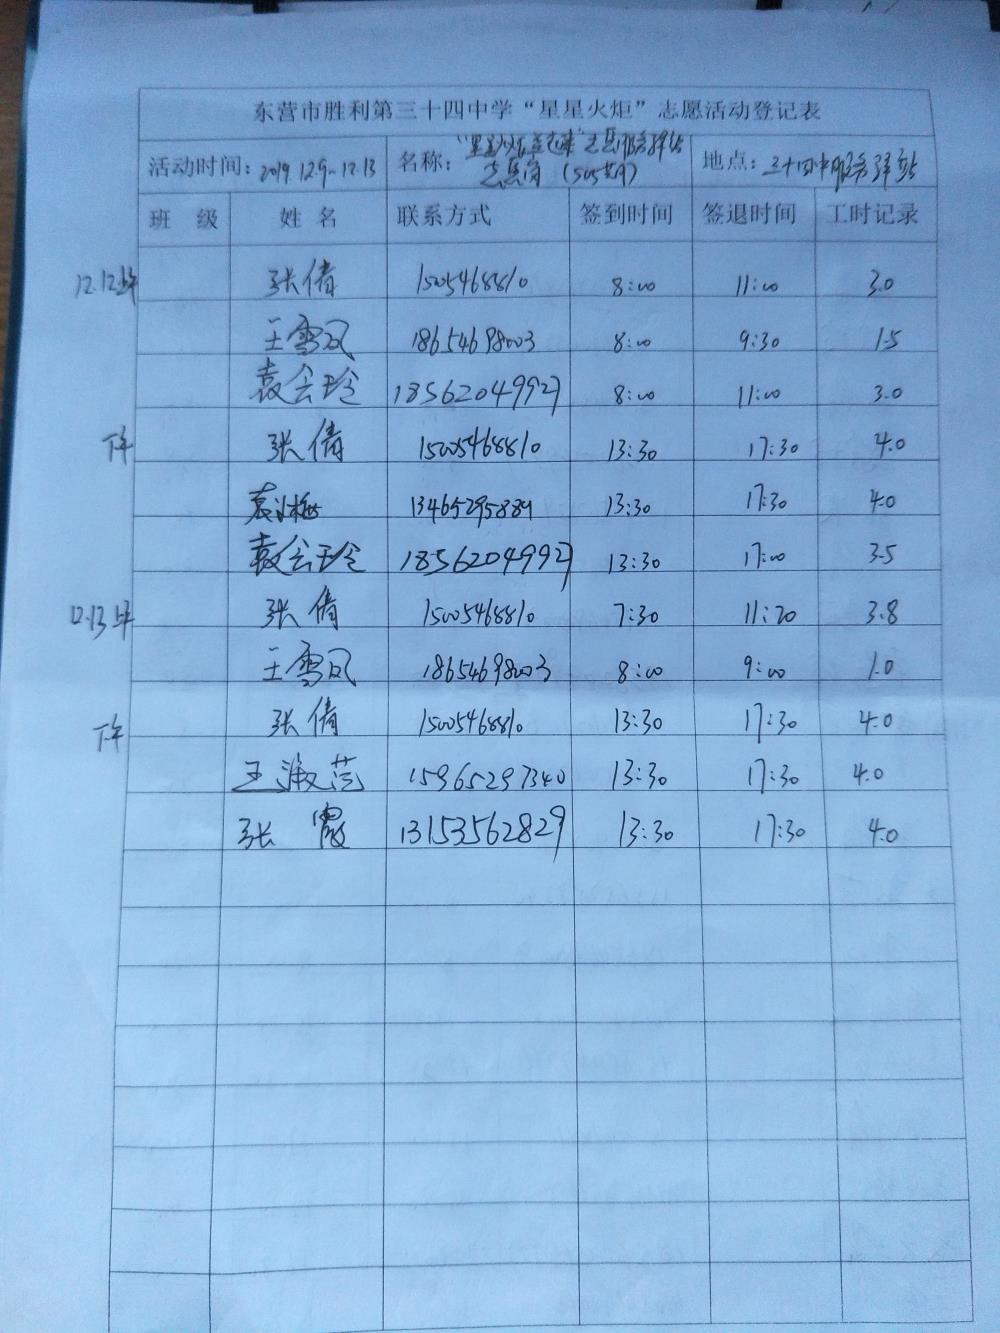 东营市胜利第三十四中学“星星火炬”志愿活动登记表
活动时间：2019 12.9-12.13 名称：“星星火炬益起来”志愿服务驿站 志愿岗（505期） 地点：三十四中服务驿站
班 级 姓 名 联系方式 签到时间 签退时间 工时记录
12.12上午 张倩 15005468810 8:00 11:00 3.0
王雪凤 18654698003 8:00 9:30 1.5
袁会玲 18562049927 8:00 11:00 3.0
下午 张倩 15005468810 13:30 17:30 4.0
袁小梅 13465295889 13:30 17:30 4.0
袁会玲 18562049927 13:30 17:00 3.5
12.13上午 张倩 15005468810 7:30 11:20 3.8
王雪凤 18654698003 8:00 9:00 1.0
下午 张倩 15005468810 13:30 17:30 4.0
王淑范 15965297340 13:30 17:30 4.0
张霞 13153562829 13:30 17:30 4.0